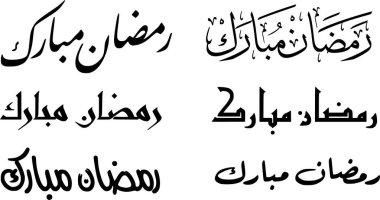 رَمَضَانْ مُبَارَكْ
رمضان مبارك
رمضان مبارك
رمضان مبارك
رمضان مبارك
رمضان مبارك